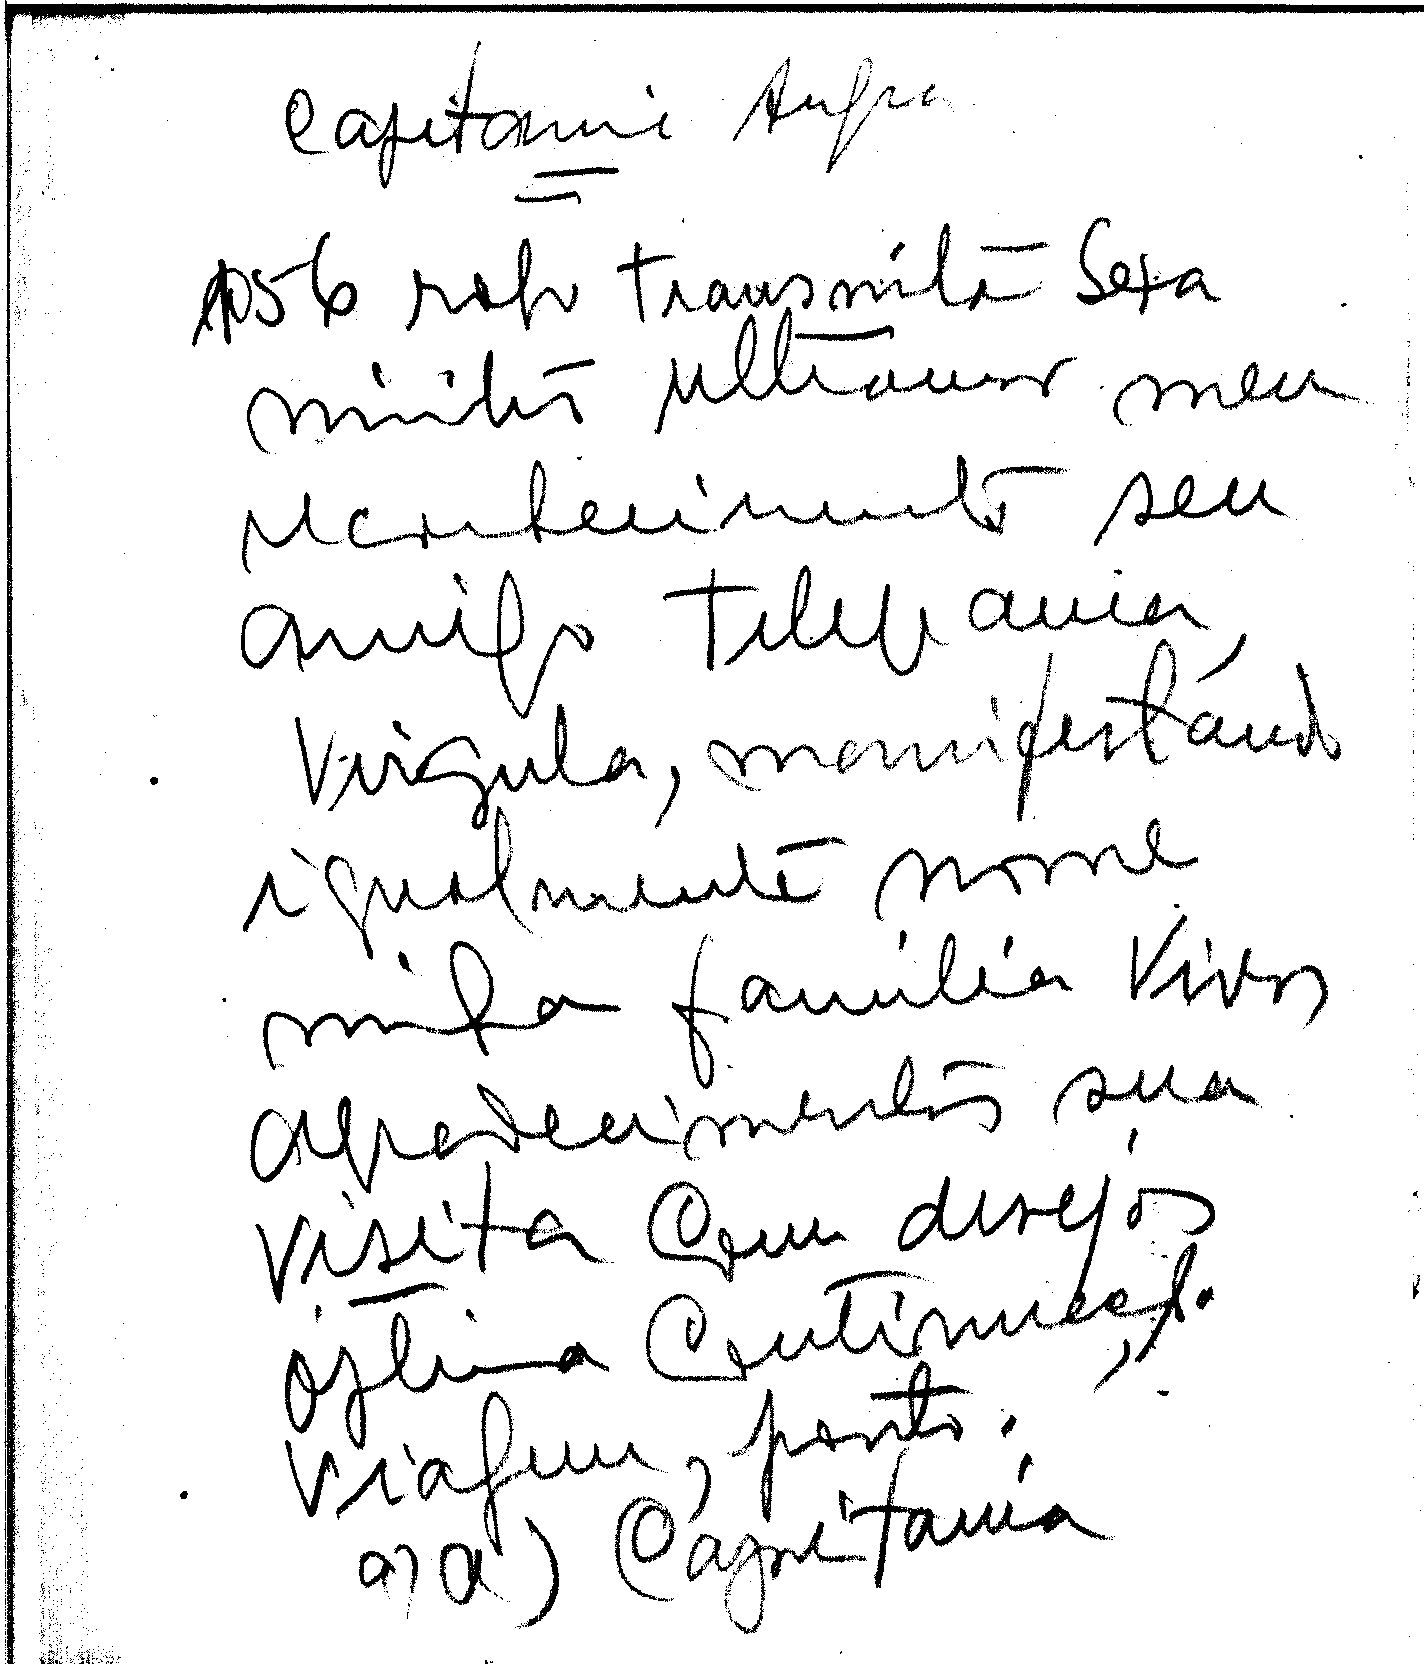 Capitania Angra
1056 rogo transmita Sexa
ministro Ultramar meu
reconhecimento seu
amigo telegrama
virgula, manifestando
igualmente nome
minha familia vivos
agradecimentos sua
visita com desejos
óptima continuação
viagem, ponto.
a) Capitania